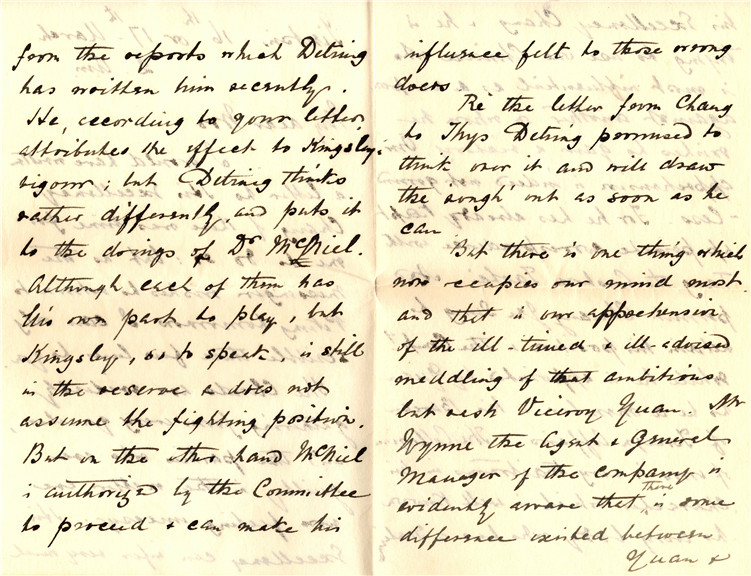 from the reports which Detring
has written him recently.
He, according to your letter,
attributes the effect to Kingsley's
vigour; but Detring thinks
rather differently and puts it
to the doings of Dr McNiel.
Although each of them has
his own part to play, but
Kingsley, so to speak, is still
in the reserve & does not
assume the fighting position.
But on the other hand McNiel
is authorized by the Committee
to proceed & can make his
influence felt to those wrong
doers.
Re the letter from Chang
to Thys Detring promised to
think over it and will draw
the 'rough' out as soon as he
can
But there is one thing which
now occupies our mind most.
and that is our apprehension
of the ill-timed & ill-advised
meddling of that ambitious
but rash Viceroy Yuan. Mr
Wynne the Agent & General
Manager of the company is
evidently aware that there is some
difference existed between
Yuan &